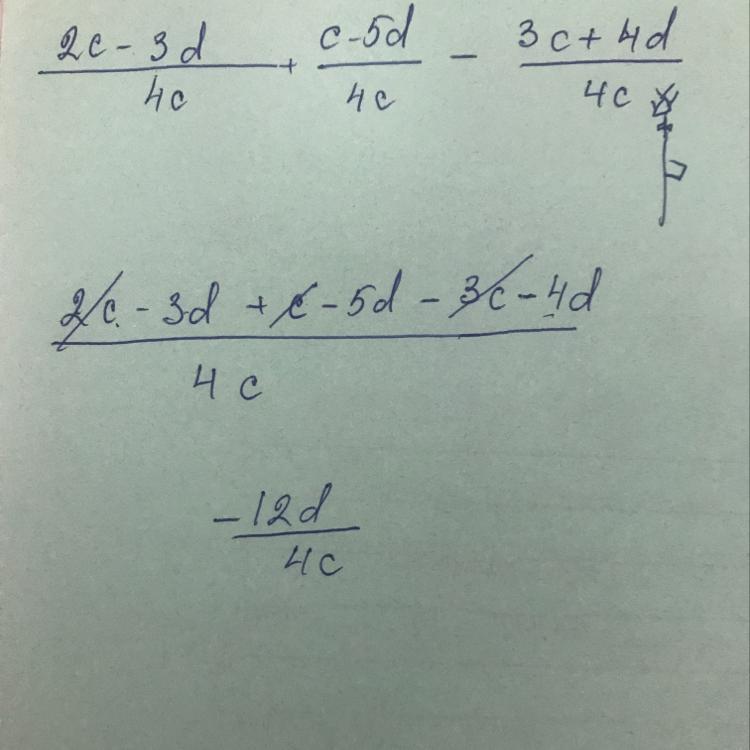 2c - 3d / 4c + c - 5d / 4c - 3c + 4d / 4c
2c - 3d + c - 5d - 3c - 4d / 4c
-12d / 4c